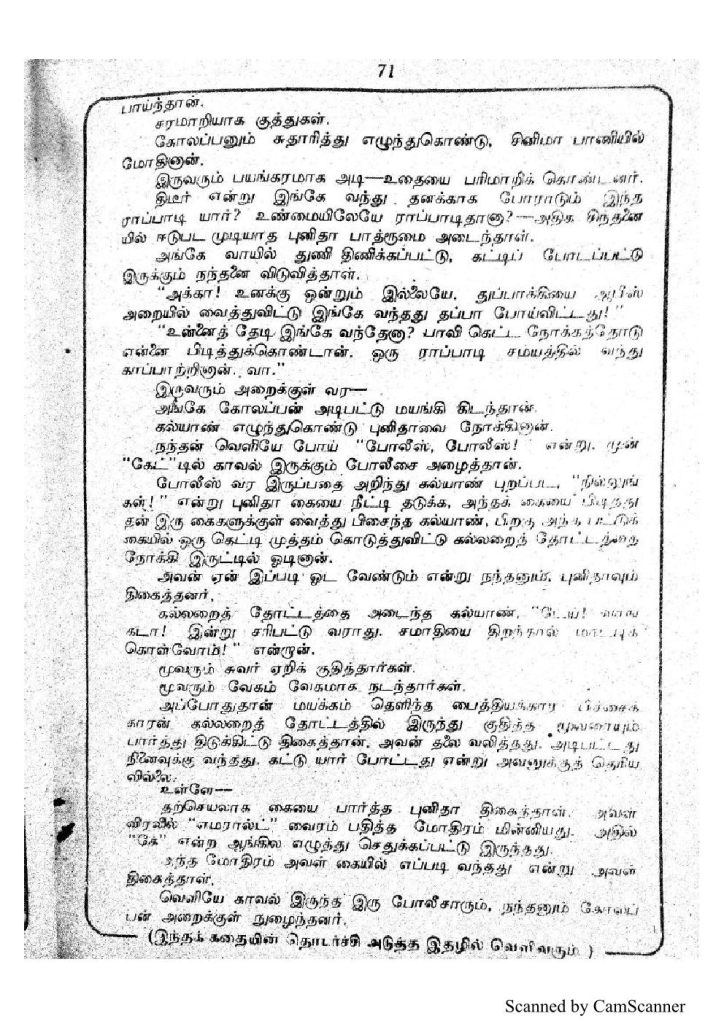 71
பாய்ந்தான்.
சரமாறியாக குத்துகள்.
கோலப்பனும் சுதாரித்து எழுந்துகொண்டு, சினிமா பாணியில்
மோதினான்.
இருவரும் பயங்கரமாக அடி—உதையை பரிமாறிக் கொண்டனர்.
திடீர் என்று இங்கே வந்து தனக்காக போராடும் இந்த
ராப்பாடி யார்? உண்மையிலேயே ராப்பாடிதானா?—அதிக சிந்தனை
யில் ஈடுபட முடியாத புனிதா பாத்ரூமை அடைந்தாள்.
அங்கே வாயில் துணி திணிக்கப்பட்டு, கட்டிப் போடப்பட்டு
இருக்கும் நந்தனை விடுவித்தாள்.
"அக்கா! உனக்கு ஒன்றும் இல்லையே. துப்பாக்கியை ஆபீஸ்
அறையில் வைத்துவிட்டு இங்கே வந்தது தப்பா போய்விட்டது!"
"உன்னைத் தேடி இங்கே வந்தேனா? பாவி கெட்ட நோக்கத்தோடு
என்னை பிடித்துக்கொண்டான். ஒரு ராப்பாடி சமயத்தில் வந்து
காப்பாற்றினான். வா."
இருவரும் அறைக்குள் வர—
அங்கே கோலப்பன் அடிபட்டு மயங்கி கிடந்தான்.
கல்யாண் எழுந்துகொண்டு புனிதாவை நோக்கினான்.
நந்தன் வெளியே போய் "போலீஸ், போலீஸ்!" என்று, முன்
"கேட்"டில் காவல் இருக்கும் போலீசை அழைத்தான்.
போலீஸ் வர இருப்பதை அறிந்து கல்யாண் புறப்பட, "நில்லுங்
கள்!" என்று புனிதா கையை நீட்டி தடுக்க, அந்தக் கையை பிடித்து
தன் இரு கைகளுக்குள் வைத்து பிசைந்த கல்யாண், பிறகு அந்த பட்டுக்
கையில் ஒரு கெட்டி முத்தம் கொடுத்துவிட்டு கல்லறைத் தோட்டத்தை
நோக்கி இருட்டில் ஓடினான்.
அவன் ஏன் இப்படி ஓட வேண்டும் என்று நந்தனும், புனிதாவும்
திகைத்தனர்.
கல்லறைத் தோட்டத்தை அடைந்த கல்யாண், "டேய்! வாங்
கடா! இன்று சரிபட்டு வராது. சமாதியை திறந்தால் மாட்டிக்
கொள்வோம்!" என்றான்.
மூவரும் சுவர் ஏறிக் குதித்தார்கள்.
மூவரும் வேகம் வேகமாக நடந்தார்கள்.
அப்போதுதான் மயக்கம் தெளிந்த பைத்தியக்கார பிச்சைக்
காரன் கல்லறைத் தோட்டத்தில் இருந்து குதித்த மூவரையும்
பார்த்து திடுக்கிட்டு திகைத்தான். அவன் தலை வலித்தது. அடிபட்டது
நினைவுக்கு வந்தது. கட்டு யார் போட்டது என்று அவனுக்குத் தெரிய
வில்லை.
உள்ளே——
தற்செயலாக கையை பார்த்த புனிதா திகைத்தாள். அவள்
விரலில் "எமரால்ட்" வைரம் பதித்த மோதிரம் மின்னியது. அதில்
"கே" என்ற ஆங்கில எழுத்து செதுக்கப்பட்டு இருந்தது.
அந்த மோதிரம் அவள் கையில் எப்படி வந்தது என்று அவள்
திகைத்தாள்.
வெளியே காவல் இருந்த இரு போலீசாரும், நந்தனும் கோலப்
பன் அறைக்குள் நுழைந்தனர்.
(இந்தக் கதையின் தொடர்ச்சி அடுத்த இதழில் வெளிவரும்)
Scanned by CamScanner